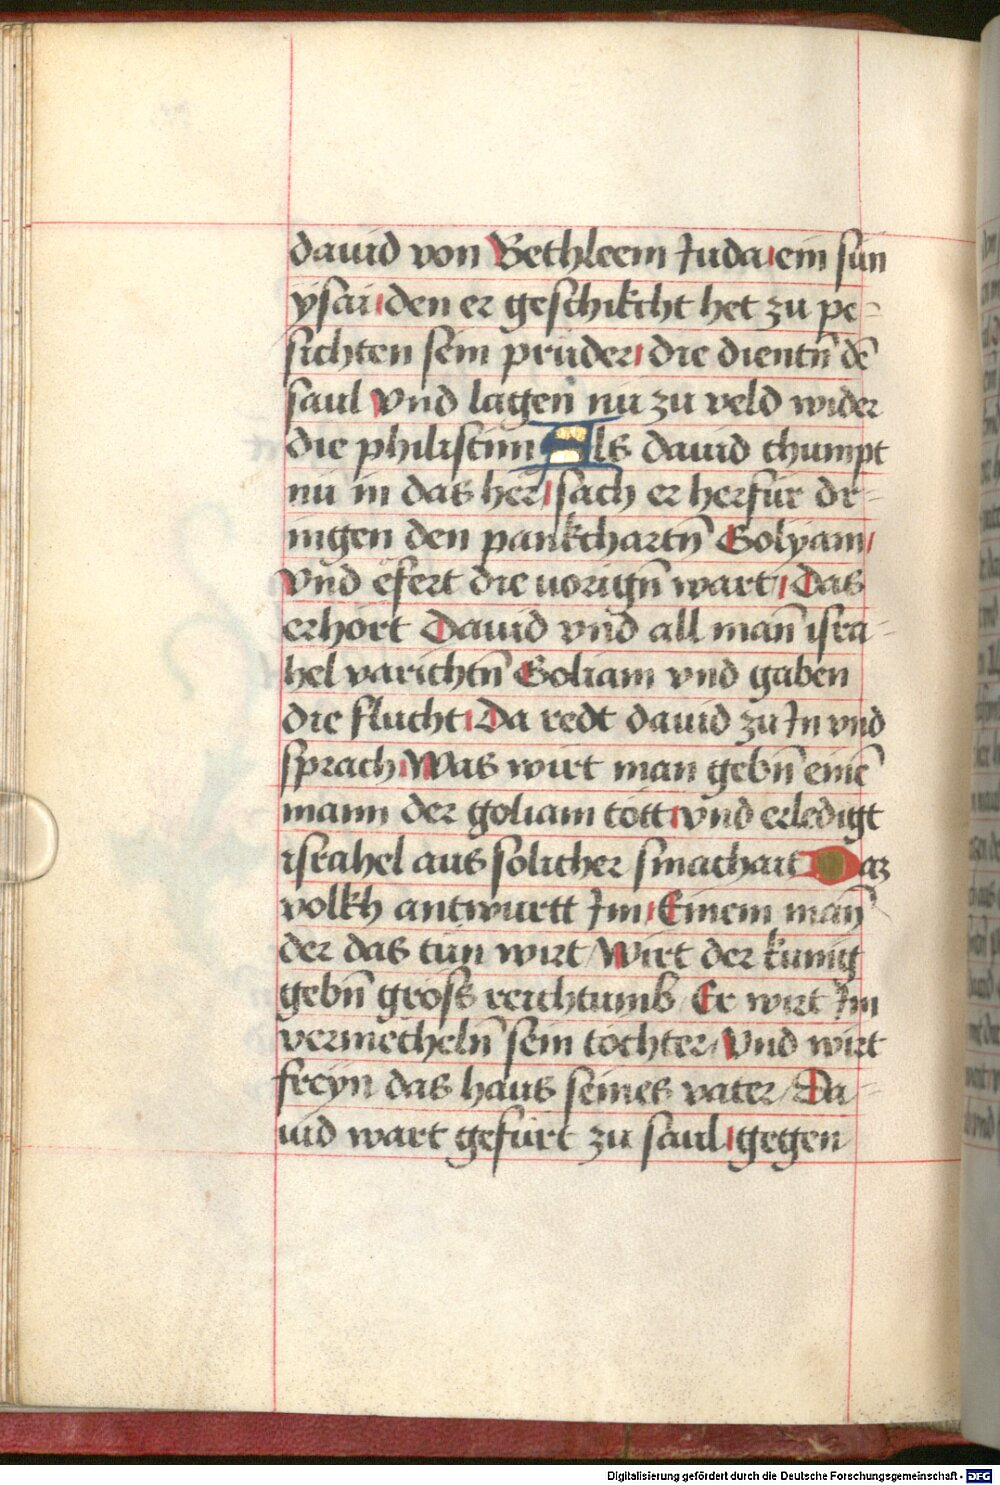 dauid von Bethleem Juda ein sun
ysai den er geschikcht het zu pe-
sichten sein prüder die dientn̄ dē
saul Vnd lagen nu zu veld wider
die philistim Als dauid chumpt
nu in das her sach er herfür dr-
ingen den pankchartn̄ Golyam
Vnd efert die uorign̄ wart Das
erhort Dauid vnd all man̄ isra-
hel varichtn̄ Goliam vnd gaben
die flucht Da redt dauid zu In vnd
sprach Was wirt man gebn̄ einē
mann der goliam tott vnd erledigt
israhel aus solicher smachait Daz
volkh antwurtt Im Einem man̄
der das tun wirt Wirt der kunig
gebn̄ gross reichtumb Er wirt Im
vermecheln̄ sein tochter Vnd wirt
freyn das haus seines vater Da-
uid wart gefurt zu saul gegen
Digitalisierung gefördert durch die Deutsche Forschungsgemeinschaft - DFG